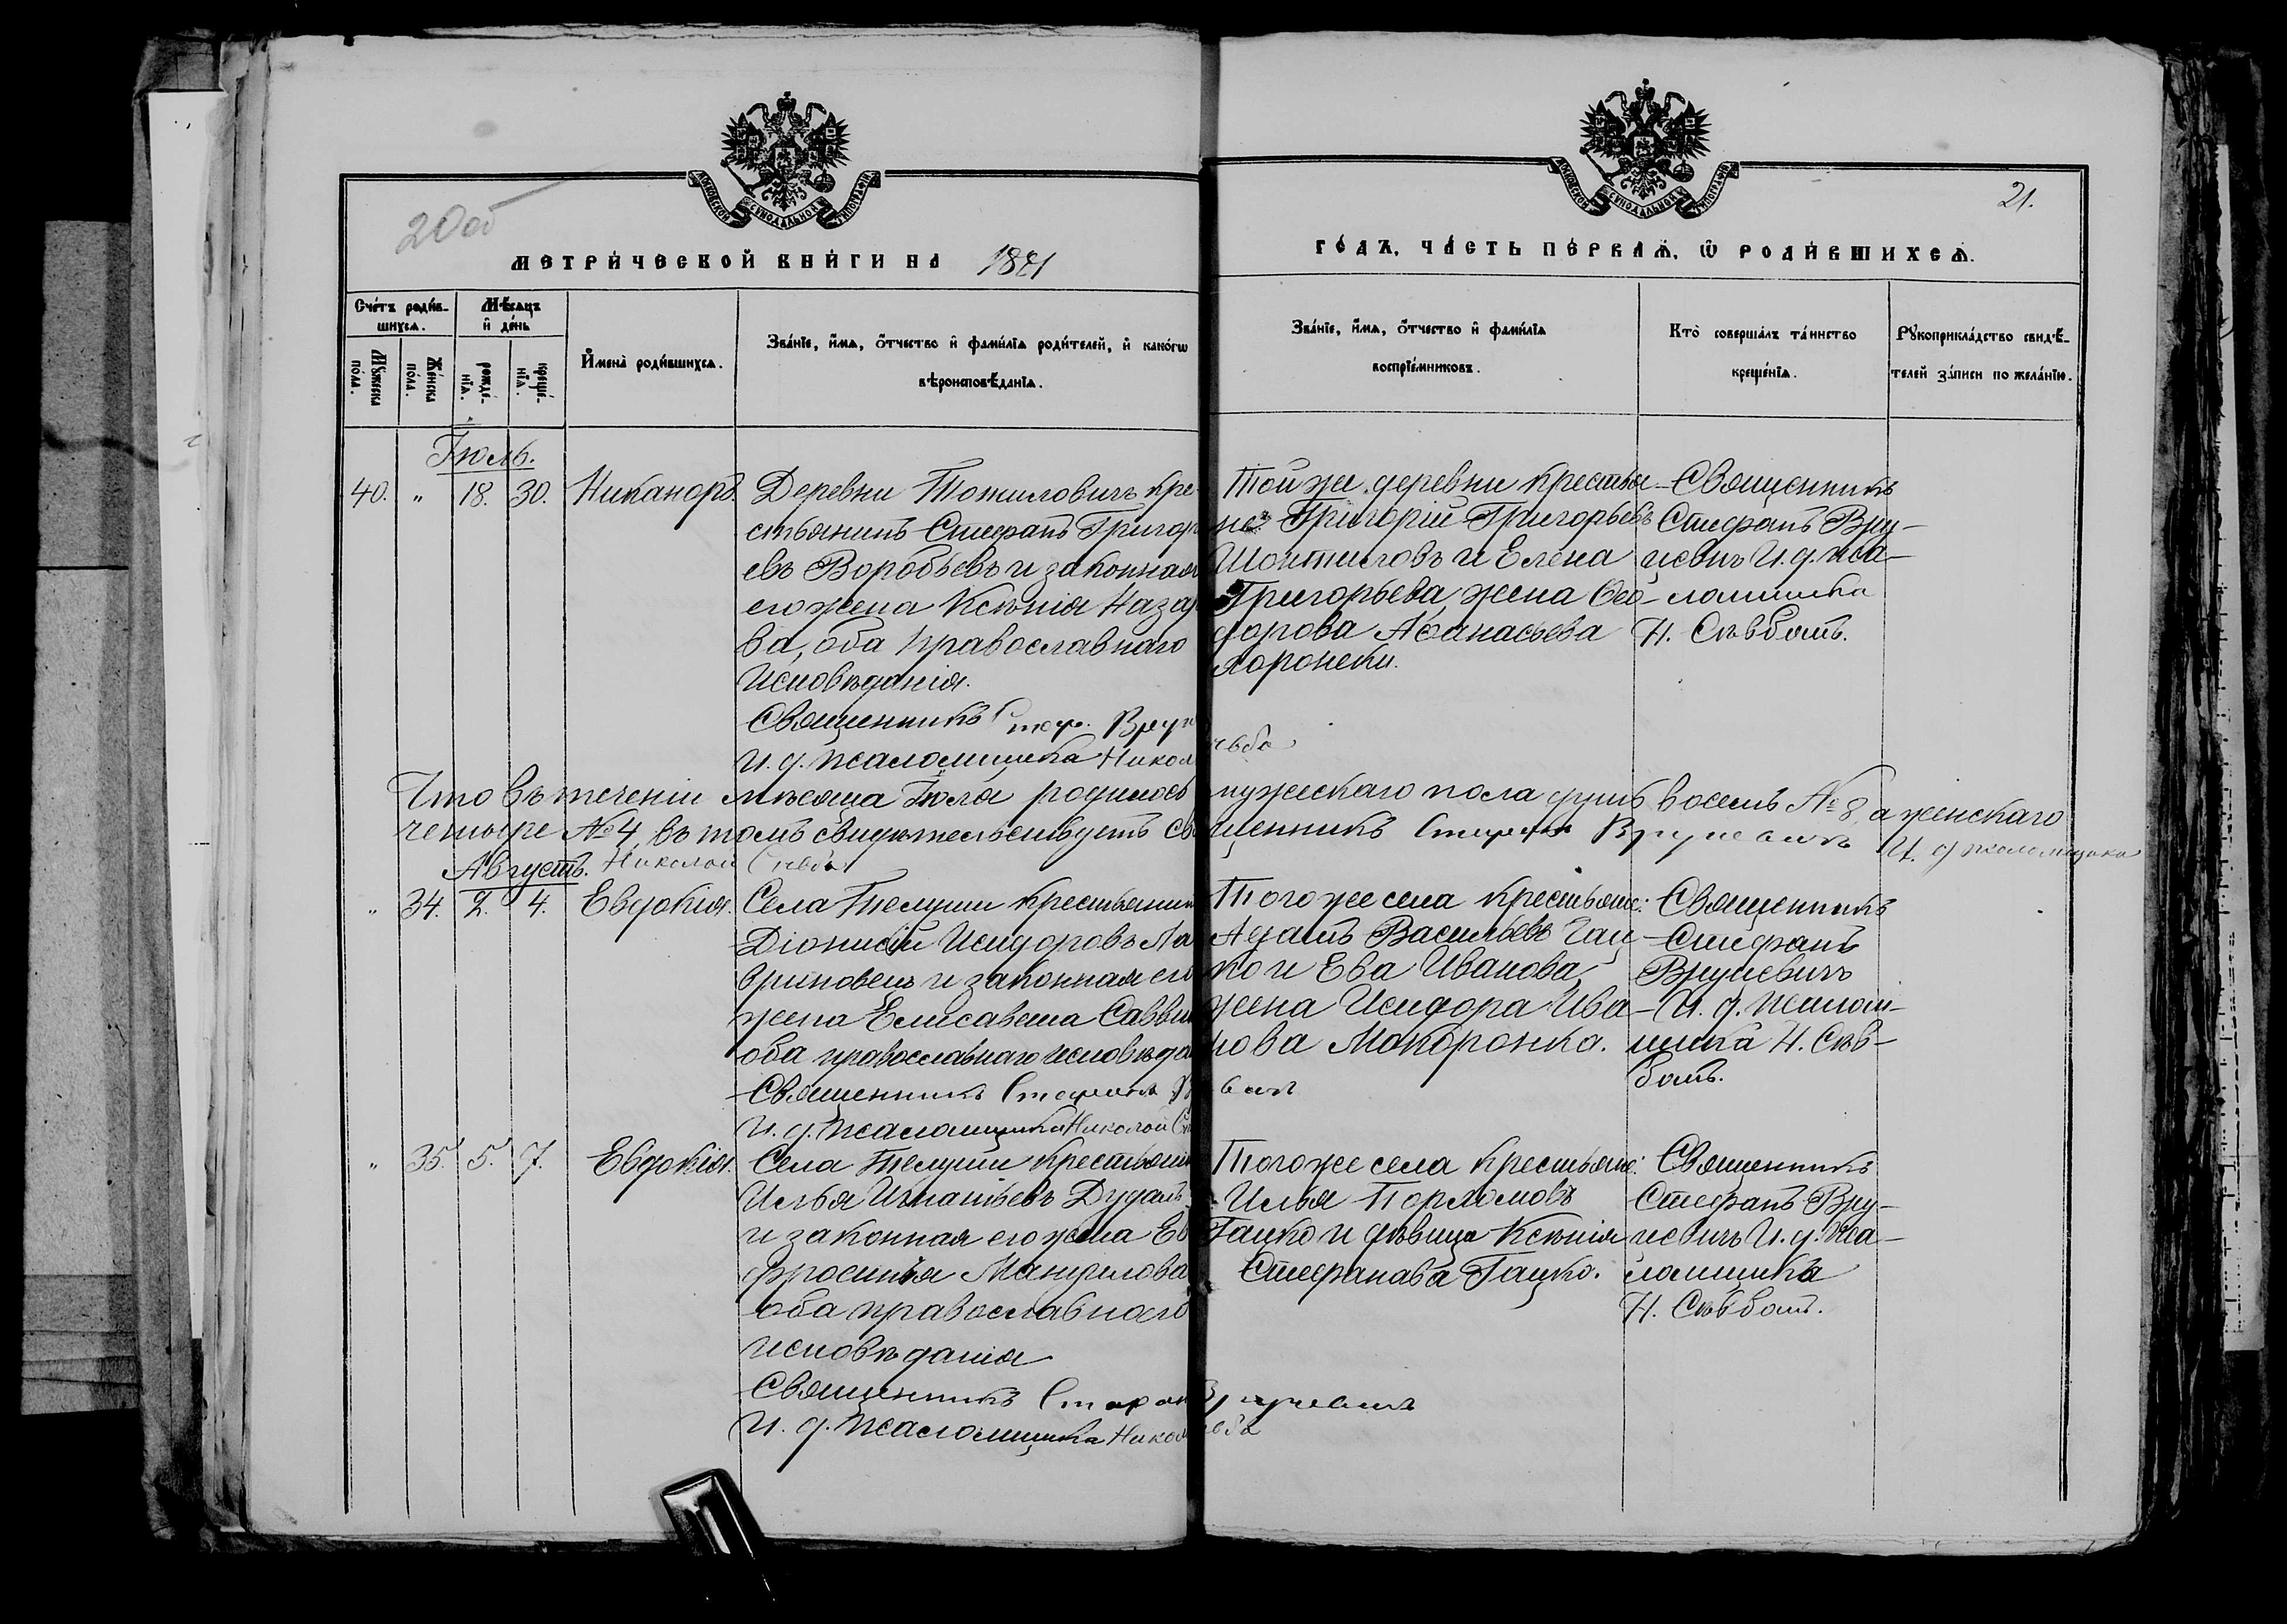 20об
21.
МЕТРИЧЕСКОЙ КНИГИ НА 1881
ГОДЪ, ЧАСТЬ ПЕРВАЯ, Ѡ РОДИВШИХСЯ.
Счетъ родив-
шихся.
Мѣсяцъ
и день
Мужеска
пола.
Женска
пола.
рожде-
нія.
креще-
нія.
Имена родившихся.
Званіе, имя, отчество и фамилія родителей, и какогѡ
вѣроисповѣданія.
Званіе, имя, отчество и фамилія
воспріемниковъ.
Кто совершалъ таинство
крещенія.
Рукоприкладство свидѣ-
телей записи по желанію.
Іюль.
40. " 18. 30. Никаноръ.
Деревни Томиловичъ кре-
стьянинъ Стефанъ Григор
евъ Воробьевъ и законная
его жена Ксенія Наза
ва, оба православнаго
исповѣданія.
Священникъ Стеф.
И. д. псаломщика Никол
Той же деревни крестья-
не: Григорій Григорьевъ
и Елена
Григорьева, жена Ѳео-
дорова Аѳанасьева
Священникъ
Стефанъ Вру-
цевичъ И. д. пса-
ломщика
Н. Сѣвбатъ.
Что въ теченіи мѣсяца Іюля родилось мужескаго пола душъ восемь № 8, а женскаго
четыре № 4, въ томъ свидѣтельствуетъ священникъ Стефанъ Вруцевичъ И. д. псаломщика
Николай
Августъ.
" 34. 2. 4. Евдокія.
Села Телуши крестьянин
Діонисій Исидоровъ Ла
вриновецъ и законная его
жена Елисавета Савви
оба православнаго исповѣда
Священникъ Стефанъ
И. д. псаломщика Николай
Того же села крестьяне:
Адамъ Васильевъ Гац-
ко и Ева Иванова,
жена Исидора Ива-
нова Макоронко.
Священникъ
Стефанъ
Вруцевичъ
И. д. псалом-
щика Н. Сѣв-
батъ.
" 35. 5. 7. Евдокія.
Села Телуши крестьянин
Илья Игнатьевъ Дудакъ
и законная его жена Ев
фросинія Мануилова
оба православнаго
исповѣданія
Священникъ Стефан Вруцевичъ
И. д. псаломщика Никол
Того же села крестьяне:
Илья Парѳомовъ
Гацко и дѣвица Ксенія
Стефанава Гацко.
Священникъ
Стефанъ Вру-
цевичъ И. д. пса-
ломщика
Н. Сѣвбатъ.